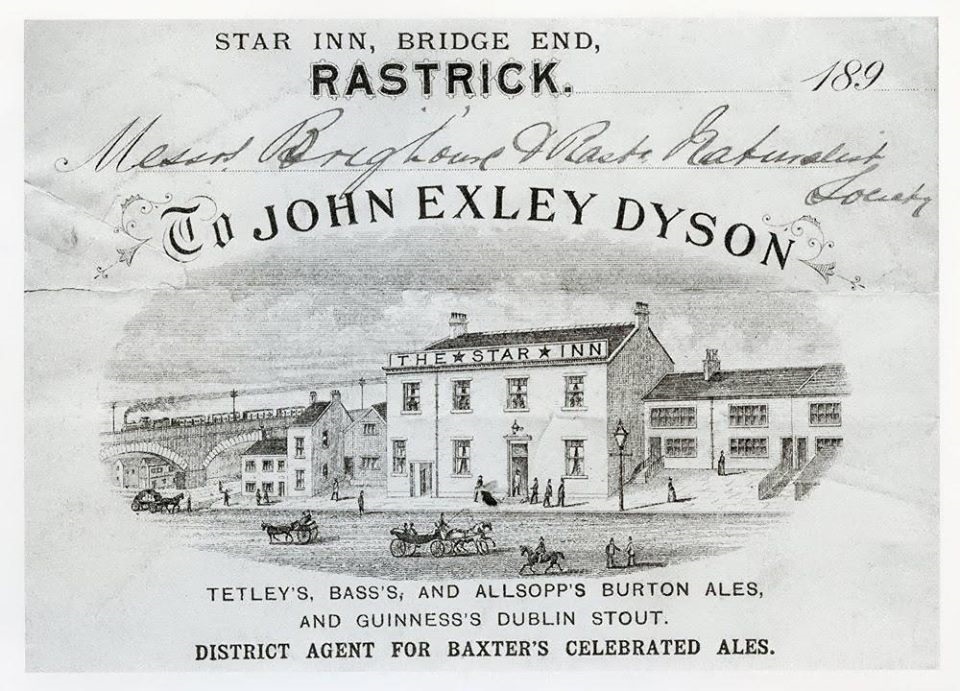 STAR INN, BRIDGE END,
RASTRICK.
189
Messrs Brighouse & Rast. Naturalist
Society
To JOHN EXLEY DYSON
THE ★ STAR ★ INN
TETLEY'S, BASS'S, AND ALLSOPP'S BURTON ALES,
AND GUINNESS'S DUBLIN STOUT.
DISTRICT AGENT FOR BAXTER'S CELEBRATED ALES.